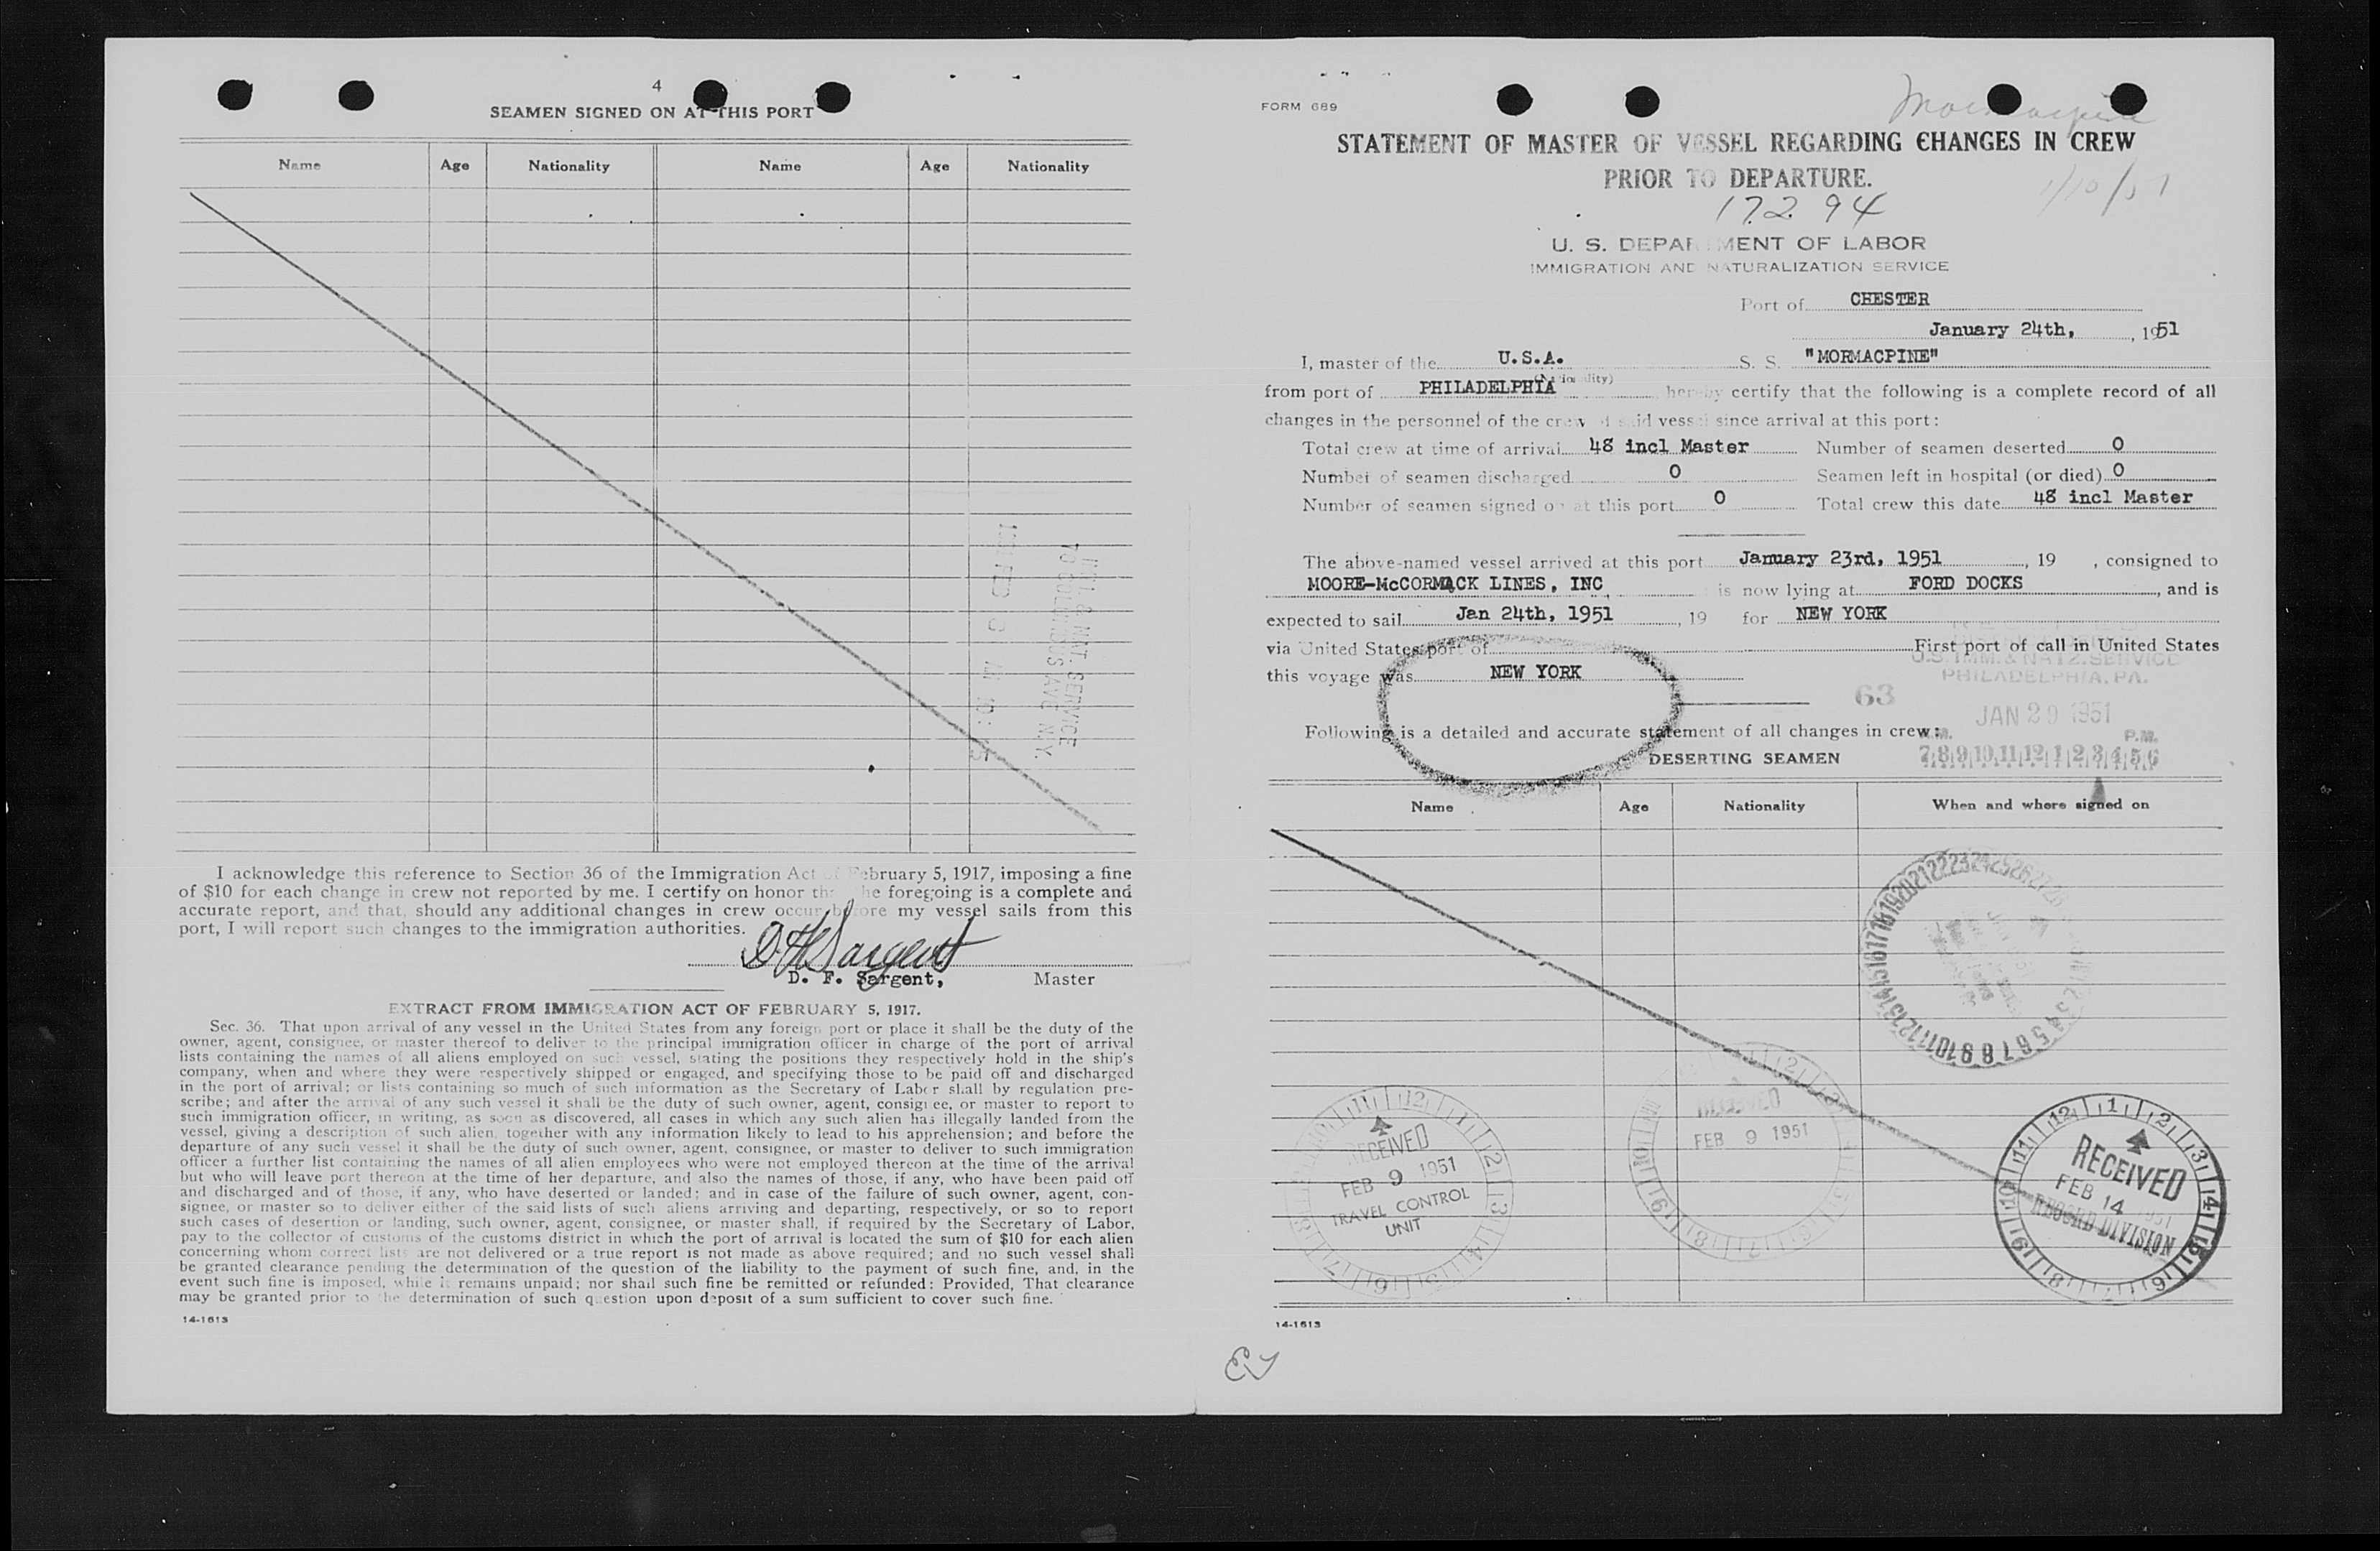 4
SEAMEN SIGNED ON AT THIS PORT
Name Age Nationality Name Age Nationality
IMM. & NAT. SERVICE
70 COLUMBUS AVE N.Y.
I acknowledge this reference to Section 36 of the Immigration Act of February 5, 1917, imposing a fine
of $10 for each change in crew not reported by me. I certify on honor that the foregoing is a complete and
accurate report, and that, should any additional changes in crew occur before my vessel sails from this
port, I will report such changes to the immigration authorities.
D. F. Sargent, Master
EXTRACT FROM IMMIGRATION ACT OF FEBRUARY 5, 1917.
Sec. 36. That upon arrival of any vessel in the United States from any foreign port or place it shall be the duty of the
owner, agent, consignee, or master thereof to deliver to the principal immigration officer in charge of the port of arrival
lists containing the names of all aliens employed on such vessel, stating the positions they respectively hold in the ship's
company, when and where they were respectively shipped or engaged, and specifying those to be paid off and discharged
in the port of arrival; or lists containing so much of such information as the Secretary of Labor shall by regulation pre-
scribe; and after the arrival of any such vessel it shall be the duty of such owner, agent, consignee, or master to report to
such immigration officer, in writing, as soon as discovered, all cases in which any such alien has illegally landed from the
vessel, giving a description of such alien, together with any information likely to lead to his apprehension; and before the
departure of any such vessel it shall be the duty of such owner, agent, consignee, or master to deliver to such immigration
officer a further list containing the names of all alien employees who were not employed thereon at the time of the arrival
but who will leave port thereon at the time of her departure, and also the names of those, if any, who have been paid off
and discharged and of those, if any, who have deserted or landed; and in case of the failure of such owner, agent, con-
signee, or master so to deliver either of the said lists of such aliens arriving and departing, respectively, or so to report
such cases of desertion or landing, such owner, agent, consignee, or master shall, if required by the Secretary of Labor,
pay to the collector of customs of the customs district in which the port of arrival is located the sum of $10 for each alien
concerning whom correct lists are not delivered or a true report is not made as above required; and no such vessel shall
be granted clearance pending the determination of the question of the liability to the payment of such fine, and, in the
event such fine is imposed, while it remains unpaid; nor shall such fine be remitted or refunded: Provided, That clearance
may be granted prior to the determination of such question upon deposit of a sum sufficient to cover such fine.
14-1613
FORM 689
Mormacpine
STATEMENT OF MASTER OF VESSEL REGARDING CHANGES IN CREW
PRIOR TO DEPARTURE.
1/10/51
17294
U. S. DEPARTMENT OF LABOR
IMMIGRATION AND NATURALIZATION SERVICE
Port of CHESTER
January 24th, , 1951
I, master of the U.S.A. S. S. "MORMACPINE"
(Nationality)
from port of PHILADELPHIA hereby certify that the following is a complete record of all
changes in the personnel of the crew of said vessel since arrival at this port:
Total crew at time of arrival 48 incl Master Number of seamen deserted 0
Number of seamen discharged 0 Seamen left in hospital (or died) 0
Number of seamen signed on at this port 0 Total crew this date 48 incl Master
The above-named vessel arrived at this port January 23rd, 1951 , 19 , consigned to
MOORE-McCORMACK LINES, INC is now lying at FORD DOCKS , and is
expected to sail Jan 24th, 1951 , 19 for NEW YORK
via United States port of First port of call in United States
U.S. IMM. & NATZ. SERVICE
this voyage was NEW YORK
PHILADELPHIA, PA.
63
JAN 29 1951
Following is a detailed and accurate statement of all changes in crew:
P.M.
DESERTING SEAMEN
7|8|9|10|11|12|1|2|3|4|5|6
Name Age Nationality When and where signed on
RECEIVED
FEB 9 1951
TRAVEL CONTROL
UNIT
FEB 9 1951
RECEIVED
FEB 14 1951
RECORD DIVISION
14-1613